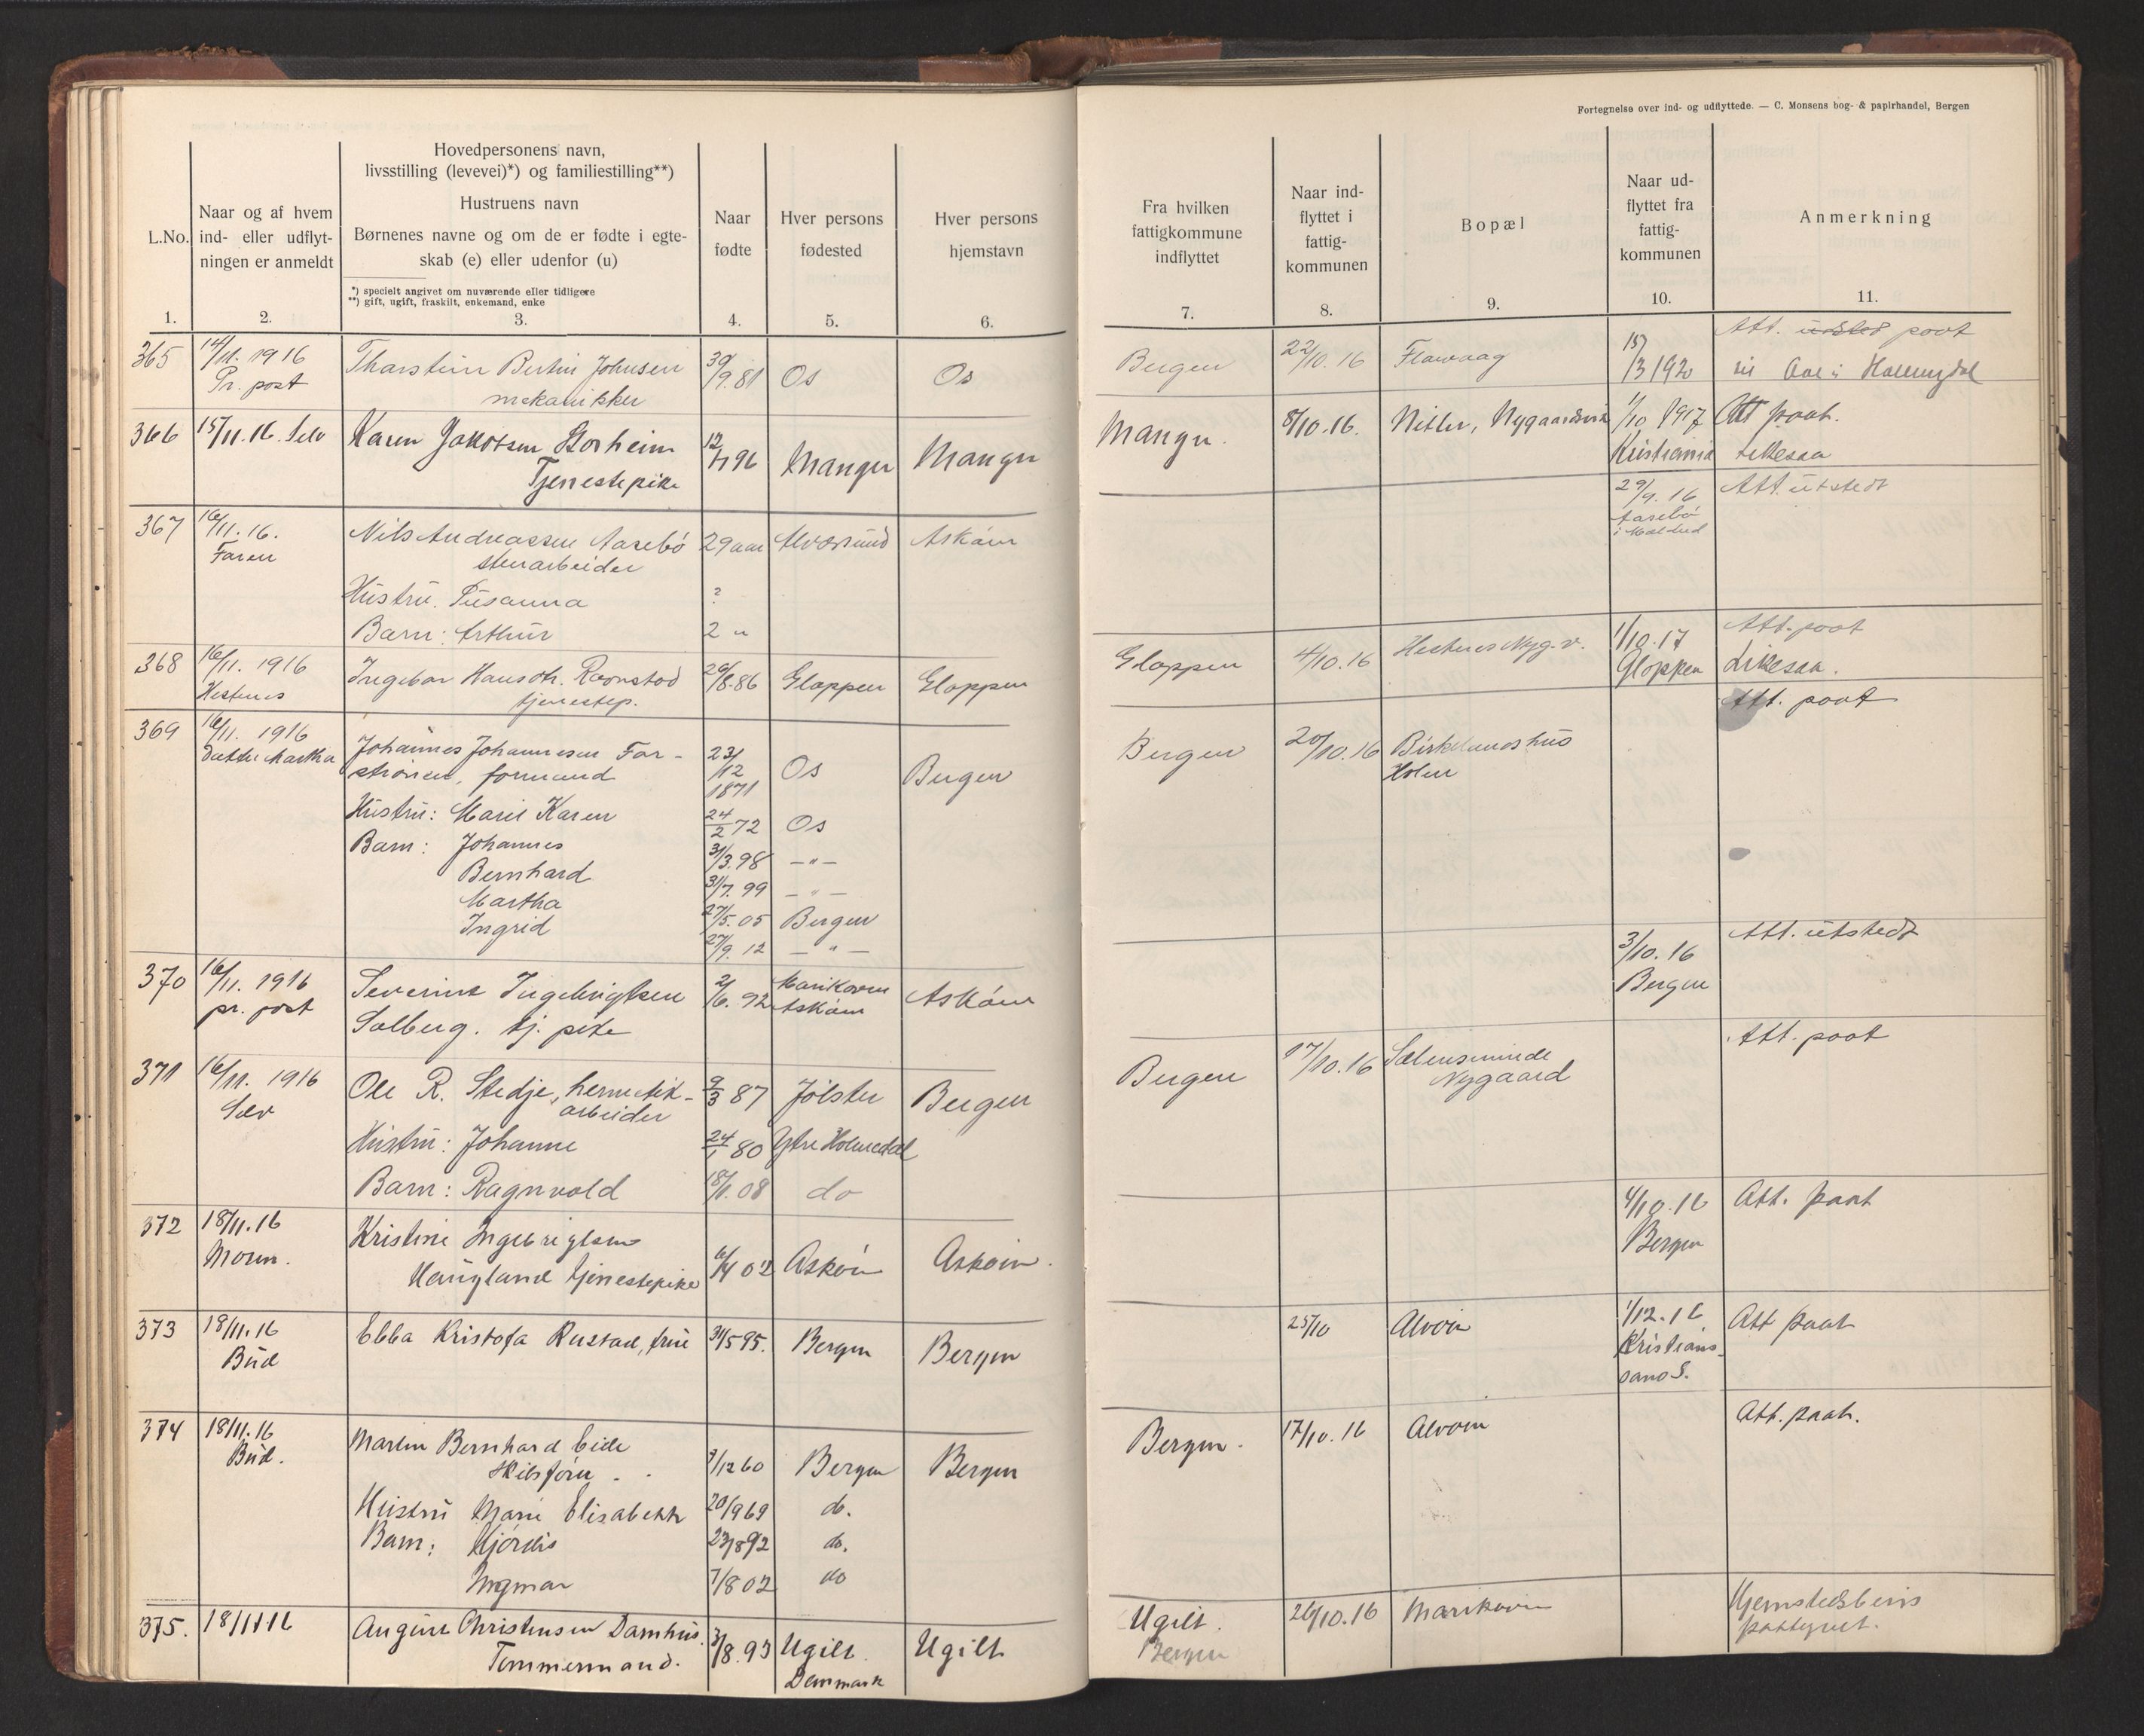 Fortegnelse over ind- og udflyttede. — C. Monsens bog- & papirhandel, Bergen
L.No.
1.
Naar og af hvem
ind- eller udflyt-
ningen er anmeldt
2.
Hovedpersonens navn,
livsstilling (levevei)*) og familiestilling**)
Hustruens navn
Børnenes navne og om de er fødte i egte-
skab (e) eller udenfor (u)
*) specielt angivet om nuværende eller tidligere
**) gift, ugift, fraskilt, enkemand, enke
3.
Naar
fødte
4.
Hver persons
fødested
5.
Hver persons
hjemstavn
6.
Fra hvilken
fattigkommune
indflyttet
7.
Naar ind-
flyttet i
fattig-
kommunen
8.
Bopæl
9.
Naar ud-
flyttet fra
fattig-
kommunen
10.
Anmerkning
11.
365 14/11. 1916 Johnsen 30/9.81 Os Os Bergen 22/10.16 Att. paat
Pr. post mekanikker 3 1920
366 15/11.16. Selv Karen Jakobsen 96 Manger Manger Manger. 8/10.16. 1/10 1917 Att paat.
Tjenestepike Kristiania
367 16/11.16. Nils Andreassen Aasebö 29 aar Alversund Askøin 29/9.16 Att. utstedt
Faren stenarbeider Aasebö
Hustru. Susanna ?
Barn: Arthur 2 "
368 16/11. 1916 86 Gloppen Gloppen Gloppen 4/10.16 1/10.17 Att. paat
Hestenes tjenestep. Gloppen
369 16/11. 1916 Johannes Johannesen 23/12 1871 Os Bergen Bergen 20/10.16 Birkelundshus Att. paat
Datter Martha formand Holen
Hustru: Marie Karen 24/2 72 Os
Barn: Johannes 31/3.98 —"—
Bernhard 31/7.99 —"—
Martha 27/5.05 Bergen
Ingrid 27/9.12 —"—
370 16/11. 1916 Severine Ingebrigtsen 2/6.92 Askøin Askøin 3/10.16 Att. utstedt
pr. post Solberg. tj. pike Bergen
371 16/11. 1916 Ole R. Stedje, hermetik- 9/3 87 Jölster Bergen Bergen 17/10.16 Sælensminde Att. paat
Selv arbeider Nygaard
Hustru: Johanne 24/1 80 Ytre Holmedal
Barn: Ragnvold 18/1.08 do
372 18/11.16 Kristine Ingebrigtsen 4/10.16 Att. paat
Moren. Haugland tjenestepike 02 Askøin Askøin. Bergen
373 18/11.16 Ebba Kristofa Rustad, frue 31/5 95. Bergen Bergen 25/10 Alvøin 1/12.16 Att paat
Bud Kristians-
sand S.
374 18/11.16 Martin Bernhard Eide Bergen. 17/10.16 Alvøin Att. paat.
Bud. 12 60 Bergen Bergen
Hustru Marie Elisabeth 20/9 69 do.
Barn: Hjørdis 23/8 92 do.
Ingmar 7/8 02 do
375. 18/11 16 Christensen Damhus. 3/8.93 Ugilt Ugilt Ugilt. 26/10.16 Hjemstedsbevis
Tømmermand. Danmark Bergen